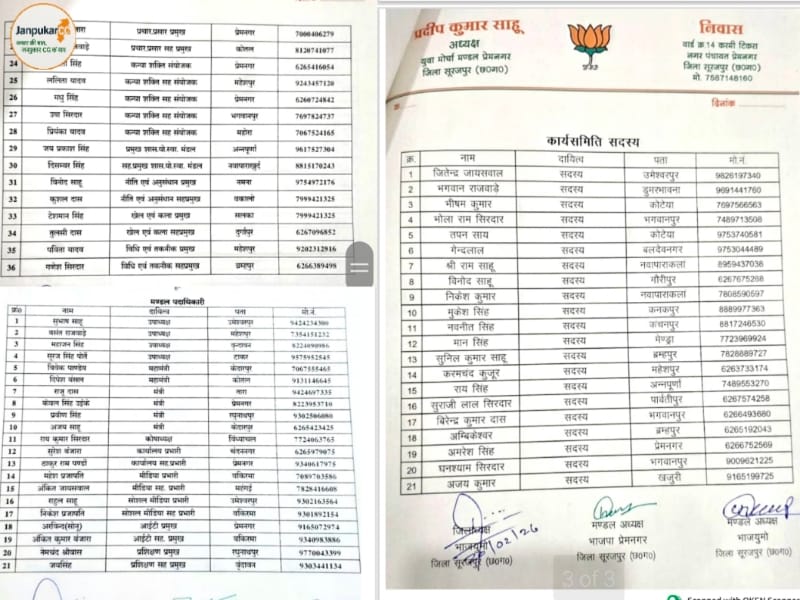 JanpukarCG
प्रचार.प्रसार प्रमुख प्रेमनगर 7000406279
प्रचार.प्रसार सह प्रमुख कोतल 8120741077
24 सिंह कन्या शक्ति संयोजक प्रेमनगर 6265416054
25 ललिता यादव कन्या शक्ति सह संयोजक महेशपुर 9243457120
26 मधु सिंह कन्या शक्ति सह संयोजक प्रेमनगर 6260724842
27 उषा सिरदार कन्या शक्ति सह संयोजक भगवानपुर 7697824737
28 प्रियंका यादव कन्या शक्ति सह संयोजक महोरा 7067524165
29 जय प्रकाश सिंह प्रमुख शास.पो.स्वा. मंडल अन्नपूर्णा 9617527304
30 दिसम्बर सिंह सह.प्रमुख शास.पो.स्वा. मंडल नवापाराखुर्द 8815170243
31 विनोद साहू नीति एवं अनुसंधान प्रमुख नमना 9754972176
32 कुशल दास नीति एवं अनुसंधान सहप्रमुख चकालो 7999421325
33 टेशमान सिंह खेल एवं कला प्रमुख सलका 7999421325
34 तुलसी दास खेल एवं कला सहप्रमुख दुर्गापुर 6267096852
35 पविता यादव विधि एवं तकनीक प्रमुख महेशपुर 9202312916
36 गणेश सिरदार विधि एवं तकनीक सहप्रमुख ब्रम्हपुर 6266389498
मण्डल पदाधिकारी
क्र0 नाम दायित्व पता मो.नं.
1 सुभाष साहू उपाध्यक्ष उमेश्वरपुर 9424234300
2 बसंत राजवाड़े उपाध्यक्ष महेशपुर 7354151232
3 महाजन सिंह उपाध्यक्ष वृन्दावन 8224090986
4 सुरज सिंह पोर्ते उपाध्यक्ष टाकर 9575952545
5 विवेक पाण्डेय महामंत्री केदारपुर 7067555465
6 दिपेश बंसल महामंत्री कोतल 9131146645
7 राजू दास मंत्री तारा 9424697335
8 केवल सिंह उईके मंत्री प्रेमनगर 8223953710
9 प्रवीण सिंह मंत्री रघुनाथपुर 9302506080
10 अजय साहू मंत्री केदारपुर 6265423425
11 राय कुमार सिरदार कोषाध्यक्ष विंध्याचल 7724063765
12 सुरेश बंजारा कार्यालय प्रभारी चंदननगर 6265979075
13 ठाकुर राम पण्डो कार्यालय सह.प्रभारी प्रेमनगर 9340617975
14 महेश प्रजापति मीडिया प्रभारी चकिरमा 7089703586
15 अंकित जायसवाल मीडिया सह. प्रभारी महंगई 7828416608
16 राहुल साहू सोशल मीडिया प्रभारी उमेश्वरपुर 9302163564
17 निकेश प्रजापति सोशल मीडिया सह प्रभारी चकिरमा 9301892154
18 अरविन्द(सोनू) आईटी प्रमुख प्रेमनगर 9165072974
19 अंकित कुमार बंजारा आईटी सह. प्रमुख चकिरमा 9340983886
20 नेमचंद श्रीवास प्रशिक्षण प्रमुख रघुनाथपुर 9770043399
21 जयसिंह प्रशिक्षण सह प्रमुख वृंदावन 9303441134
प्रदीप कुमार साहू
अध्यक्ष
युवा मोर्चा मण्डल प्रेमनगर
जिला सूरजपुर (छ0ग0)
निवास
वार्ड क्र.14 कार्मी टिकरा
नगर पंचायत प्रेमनगर
जिला सूरजपुर (छ0ग0)
मो. 7587148160
दिनांक
कार्यसमिति सदस्य
क्र. नाम दायित्व पता मो.नं.
1 जितेन्द्र जायसवाल सदस्य उमेश्वरपुर 9826197340
2 भगवान राजवाड़े सदस्य डुमरभावना 9691441760
3 भीषम कुमार सदस्य कोटेया 7697566563
4 भोला राम सिरदार सदस्य भगवानपुर 7489713508
5 तपन साय सदस्य कोटेया 9753740581
6 गेन्दलाल सदस्य बलदेवनगर 9753044489
7 श्री राम साहू सदस्य नवापाराकला 8959437036
8 विनोद साहू सदस्य गौरीपुर 6267675268
9 निकेश कुमार सदस्य नवापाराकला 7808590597
10 मुकेश सिंह सदस्य कनकपुर 8889977363
11 नवनीत सिंह सदस्य कंचनपुर 8817246530
12 मान सिंह सदस्य मेण्ड्रा 7723969924
13 सुनिल कुमार साहू सदस्य ब्रम्हपुर 7828889727
14 करमचंद कुजूर सदस्य महेशपुर 6263733174
15 राय सिंह सदस्य अन्नपूर्णा 7489553270
16 सुराजी लाल सिरदार सदस्य पार्वतीपुर 6267574258
17 बिरेन्द्र कुमार दास सदस्य भगवानपुर 6266493680
18 अम्बिकेश्वर सदस्य ब्रम्हपुर 6265192043
19 अमरेश सिंह सदस्य प्रेमनगर 6266752569
20 घनश्याम सिरदार सदस्य भगवानपुर 9009621225
21 अजय कुमार सदस्य खजुरी 9165199725
जिलाध्यक्ष
भाजयुमो
जिला सूरजपुर (छ0ग0)
02/26
मण्डल अध्यक्ष
भाजपा प्रेमनगर
जिला सूरजपुर (छ0ग0)
मण्डल अध्यक्ष
भाजयुमो
जिला सूरजपुर (छ0ग0)
3 of 3